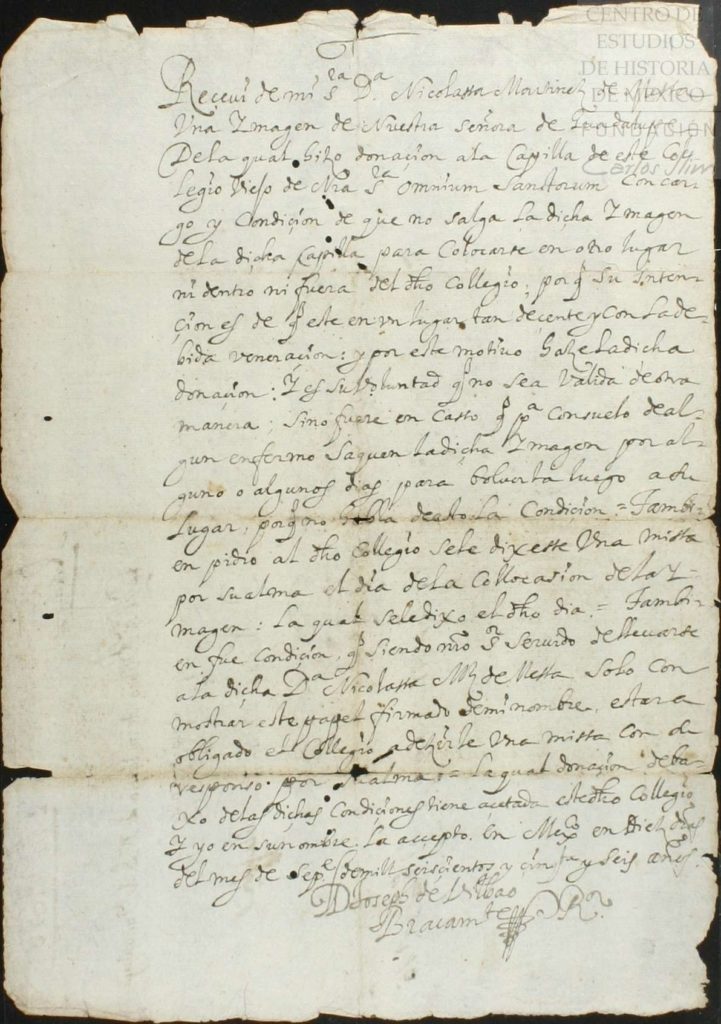 CENTRO DE
ESTUDIOS
DE HISTORIA
DE MÉXICO
FUNDACIÓN
Carlos Slim
Reçeui de mi S.ra D.a Nicolassa Martinez de Messa
Una Ymagen de Nuestra Señora de Guadalupe
De la qual hizo donaçion a la Capilla de este Co-
legio Viejo de Nra S.ra Omnium Sanctorum Con car-
go y Condiçion de que no salga La dicha Ymagen
de La dicha Capilla para Colocarse en otro lugar
ni dentro ni fuera del dho Collegio; porq su Inten-
çion es de q este en vn lugar tan decente y con La de-
bida veneraçion: y por este motivo haze La dicha
donaçion: Y es su Voluntad q no sea Valida de otra
manera; sino fuere en Casso q p.a Consuelo de al-
gun enfermo saquen La dicha Ymagen por al-
guno o algunos dias para bolverla luego a su
Lugar, porq no habla de esto La Condiçion = Tambi-
en pidio al dho Collegio se le dixesse Una missa
por su alma el dia de la Collocasion de la Y-
magen: La qual se le dixo el dho dia. = Tambi-
en fue Condiçion, q siendo nro S.r servido de llevarse
a la dicha D.a Nicolassa Mrz de Messa solo con
mostrar este papel firmado de mi nombre, estara
obligado el Collegio a dezirle Una missa con su
responso por su alma: = La qual donaçion deba-
xo de las dichas Condiçiones tiene açetada este dho Collegio
Y yo en su nombre La accepto. En Mex.co en Diez dias
del mes de Sep.e de mill seiscientos y çinq.ta y seis años.
D Joseph de Vilbao
Bracam.te R.or